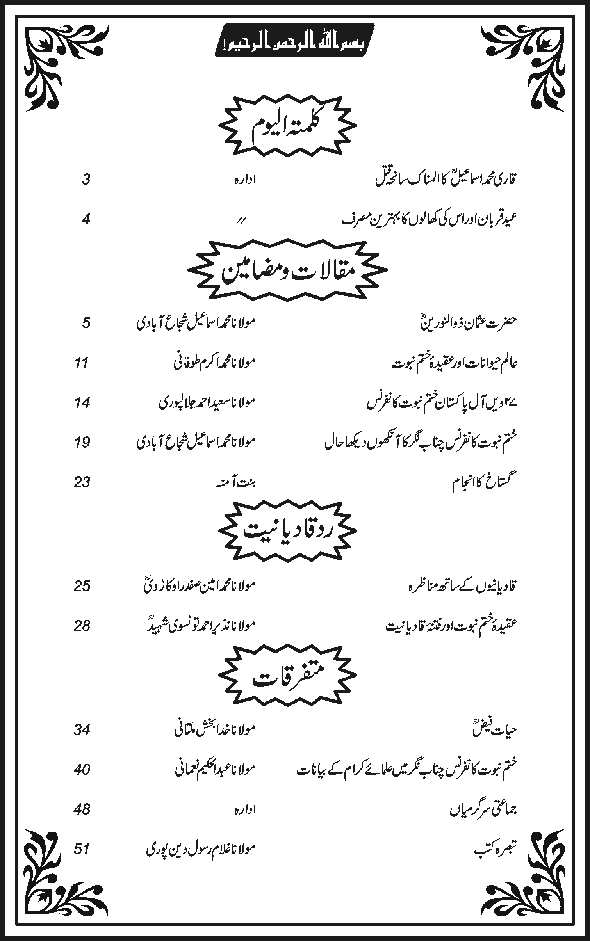 بسم اللہ الرحمن الرحیم!
کلمتہ الیوم
قاری محمد اسماعیلؒ کا المناک سانحہ قتل ادارہ 3
عید قربان اور اس کی کھالوں کا بہترین مصرف // 4
مقالات و مضامین
حضرت عثمان ذوالنورینؓ مولانا محمد اسماعیل شجاع آبادی 5
عالم حیوانات اور عقیدۂ ختم نبوت مولانا محمد اکرم طوفانی 11
۲۷ ویں آل پاکستان ختم نبوت کانفرنس مولانا سعید احمد جلالپوری 14
ختم نبوت کانفرنس چناب نگر کا آنکھوں دیکھا حال مولانا محمد اسماعیل شجاع آبادی 19
گستاخ کا انجام بنت آمنہ 23
رد قادیانیت
قادیانیوں کے ساتھ مناظرہ مولانا محمد امین صفدر اوکاڑویؒ 25
عقیدۂ ختم نبوت اور فتنۂ قادیانیت مولانا نذیر احمد تونسوی شہیدؒ 28
متفرقات
حیات فیضؒ مولانا خدا بخش ملتانی 34
ختم نبوت کانفرنس چناب نگر میں علمائے کرام کے بیانات مولانا عبدالحکیم نعمانی 40
جماعتی سرگرمیاں ادارہ 48
تبصرہ کتب مولانا غلام رسول دین پوری 51